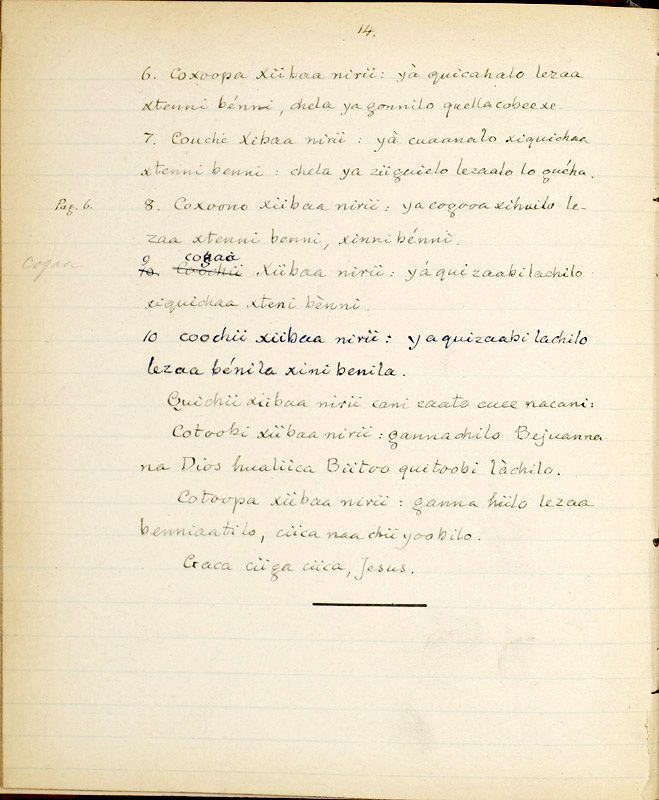 14.
6. Coxoopa xiibaa nirii: yà quicahalo lezaa
xtenni bénni, chela ya gonnilo quellacobeexe.
7. Couche xibaa nirii: yà cuaanalo xiquichaa
xtenni benni: chela ya ziiguielo lezaalo lo guéha.
Pag. 6. 8. Coxoono xiibaa nirii: ya cogooa xihuilo le-
zaa xtenni benni, xinni bénni.
cogaa
9 cogaà
10. Coochii xiibaa nirii: yá quizaabilachilo
xiquichaa xteni bènni.
10 coochii xiibaa nirii: ya quizaabi lachilo
lezaa bénila xini benila.
Quichii xiibaa nirii cani caate cuee nacani:
Cotoobi xiibaa nirii: gannachilo Bejuanna
na Dios hualiica Biitoo quitoobi làchilo.
Cotoopa xiibaa nirii: ganna hiilo lezaa
benniaatilo, ciica naa chii yoobilo.
Gaca ciiga ciica, Jesus.